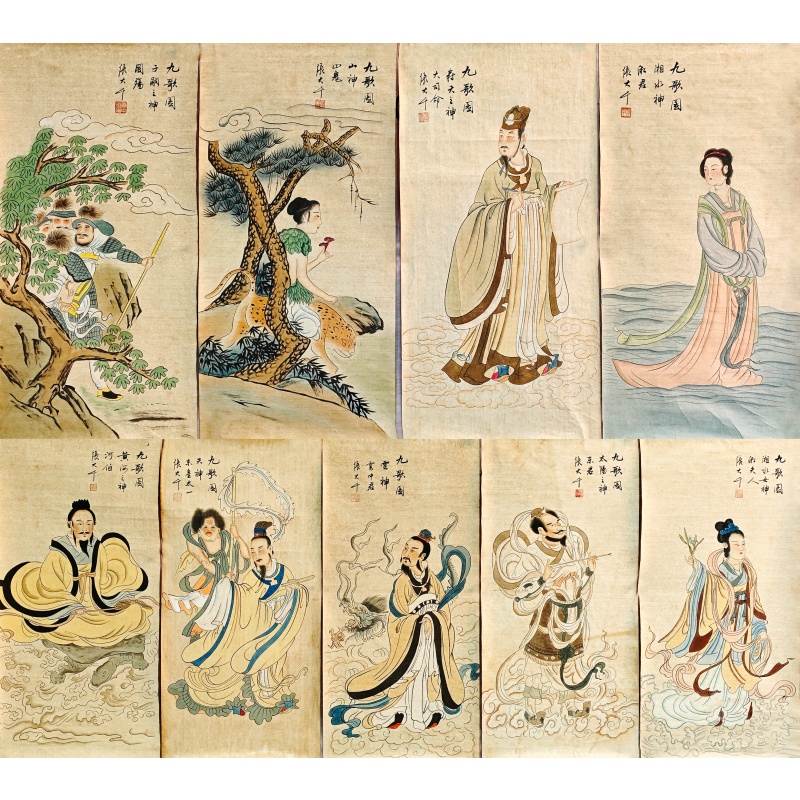 九歌圖
子嗣之神
國殤
張大千
九歌圖
山神
山鬼
張大千
九歌圖
壽夭之神
大司命
張大千
九歌圖
湘水神
湘君
張大千
九歌圖
黄河之神
河伯
張大千
九歌圖
天神
東皇太一
張大千
九歌圖
雲神
雲中君
張大千
九歌圖
太陽之神
東君
張大千
九歌圖
湘水女神
湘夫人
張大千